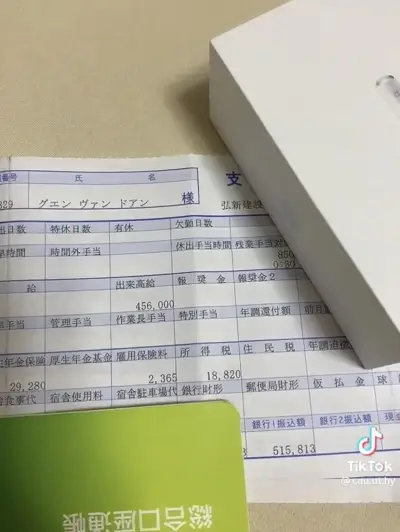 番号 氏 名 支
829 グエン ヴァン ドアン 様 弘新建設
出日数 特休日数 有休 欠勤日数
早時間 時間外手当 休出手当時間 残業手当対
850
0:30
給 出来高給 報奨金 報奨金2
456,000
手当 管理手当 作業長手当 特別手当 年調還付額 前月
生年金保険 厚生年金基金 雇用保険料 所得税 住民税 年調追徴
29,280 2,365 18,820
食事代 宿舎使用料 宿舎駐車場代 銀行財形 郵便局財形 仮払金 球
銀行1振込額 銀行2振込額 現
515,813
総合口座通帳
TikTok